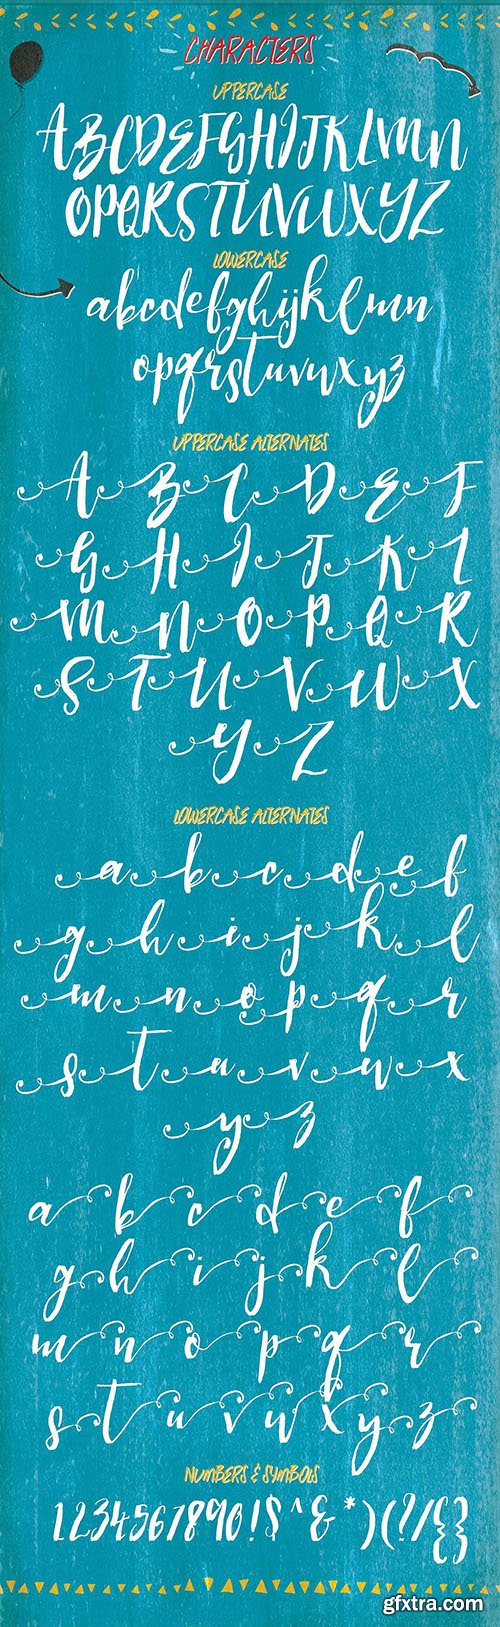 CHARACTERS
UPPERCASE
ABCDEFGHIJKLMN
OPQRSTUVWXYZ
LOWERCASE
abcdefghijklmn
opqrstuvwxyz
UPPERCASE ALTERNATES
A B C D E F
G H I J K L
M N O P Q R
S T U V W X
Y Z
LOWERCASE ALTERNATES
a b c d e f
g h i j k l
m n o p q r
s t u v w x
y z
a b c d e f
g h i j k l
m n o p q r
s t u v w x y z
NUMBERS & SYMBOLS
1234567890!$^&*)(?/{}
gfxtra.com